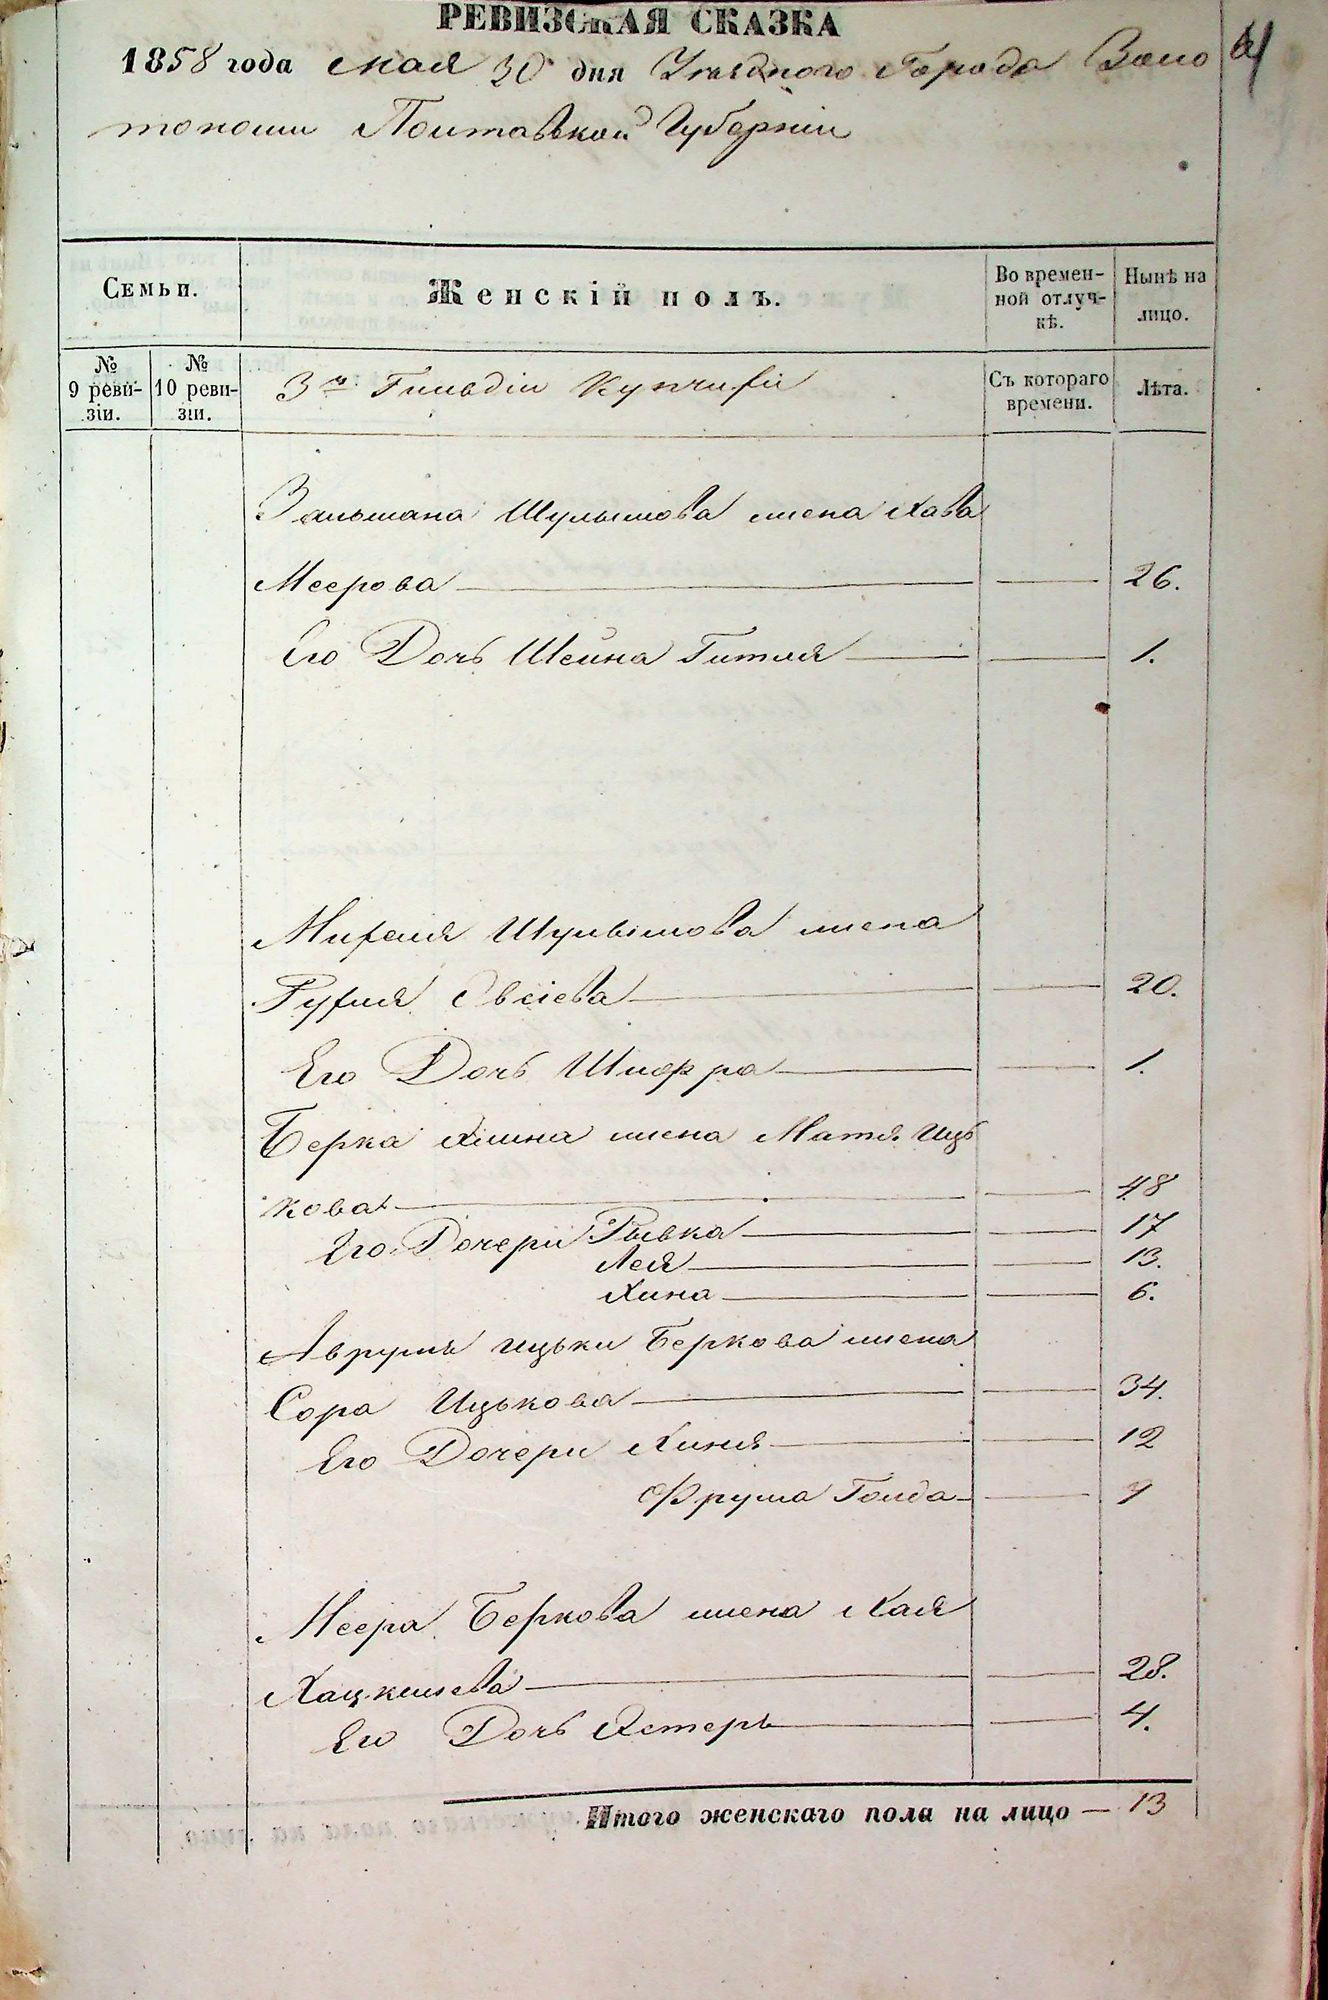 РЕВИЗСКАЯ СКАЗКА
1858 года мая 30 дня Уѣзднаго Города Золо
тоноши Полтавской Губерніи
Семьи.
Женскій полъ.
Во времен-
ной отлуч-
кѣ.
Нынѣ на
лицо.
№
9 реви-
зіи.
№
10 реви-
зіи.
3й Гильдіи Купчихи
Съ котораго
времени.
Лѣта.
Зальмана Шулымова жена Хава
Меерова — — 26.
Его Дочь Шейна Гитля — — 1.
Миреля Шулымова жена
Рухля Овсіева — — 20.
Его Дочь Шифра — — 1.
Берка жена Матя Иць
кова — — 48
Его Дочери Рывка — — 17
Лея — — 13.
Хина — — 6.
Аврумъ Ицьки Беркова жена
Сора Ицькова — — 34.
Его Дочери Хиня — — 12
Фрума Голда — — 7
Меера Беркова жена Хая
Хацкилева — — 28.
Его Дочь Эстеръ — — 4.
Итого женскаго пола на лицо — 13